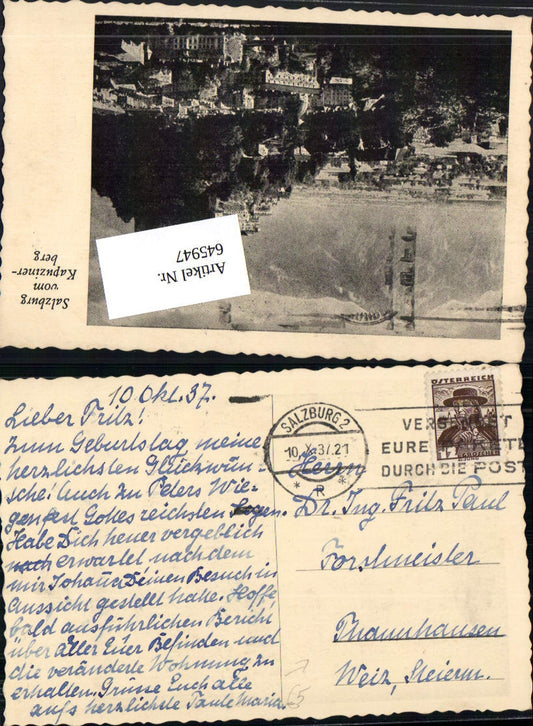 Salzburg
vom
Kapuziner-
berg
Artikel Nr.
645947
10. Okt. 37.
Lieber Fritz!
Zum Geburtstag meine
herzlichsten Glückwün-
sche! Auch zu Peters Wie-
genfest Gottes reichsten Segen.
Habe Dich heuer vergeblich
nach erwartet nachdem
mir Johanna Deinen Besuch in
Aussicht gestellt hatte. Hoffe
bald ausführlichen Bericht
über Aller Euer Befinden und
die veränderte Wohnung zu
erhalten. Grüne Euch alle
aufs herzlichste Tante Maria
SALZBURG 2
10.X.37.21
* R *
ÖSTERREICH
12
GROSCHEN
EURE
DURCH DIE POST
Herrn
Dr. Ing. Fritz Paul
Forstmeister
Thannhausen
Weiz, Steierm.